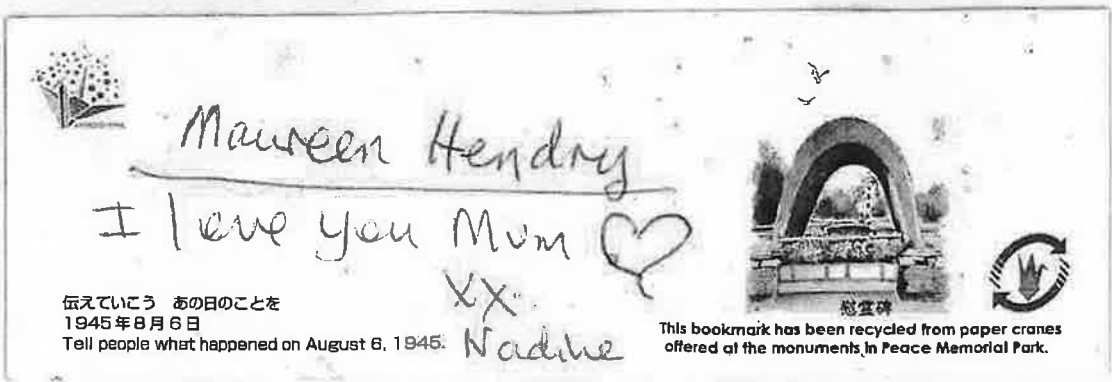 Maureen Hendry
I love you Mum
XX
Nadine
伝えていこう あの日のことを
1945年8月6日
Tell people what happened on August 6, 1945.
慰霊碑
This bookmark has been recycled from paper cranes
offered at the monuments in Peace Memorial Park.